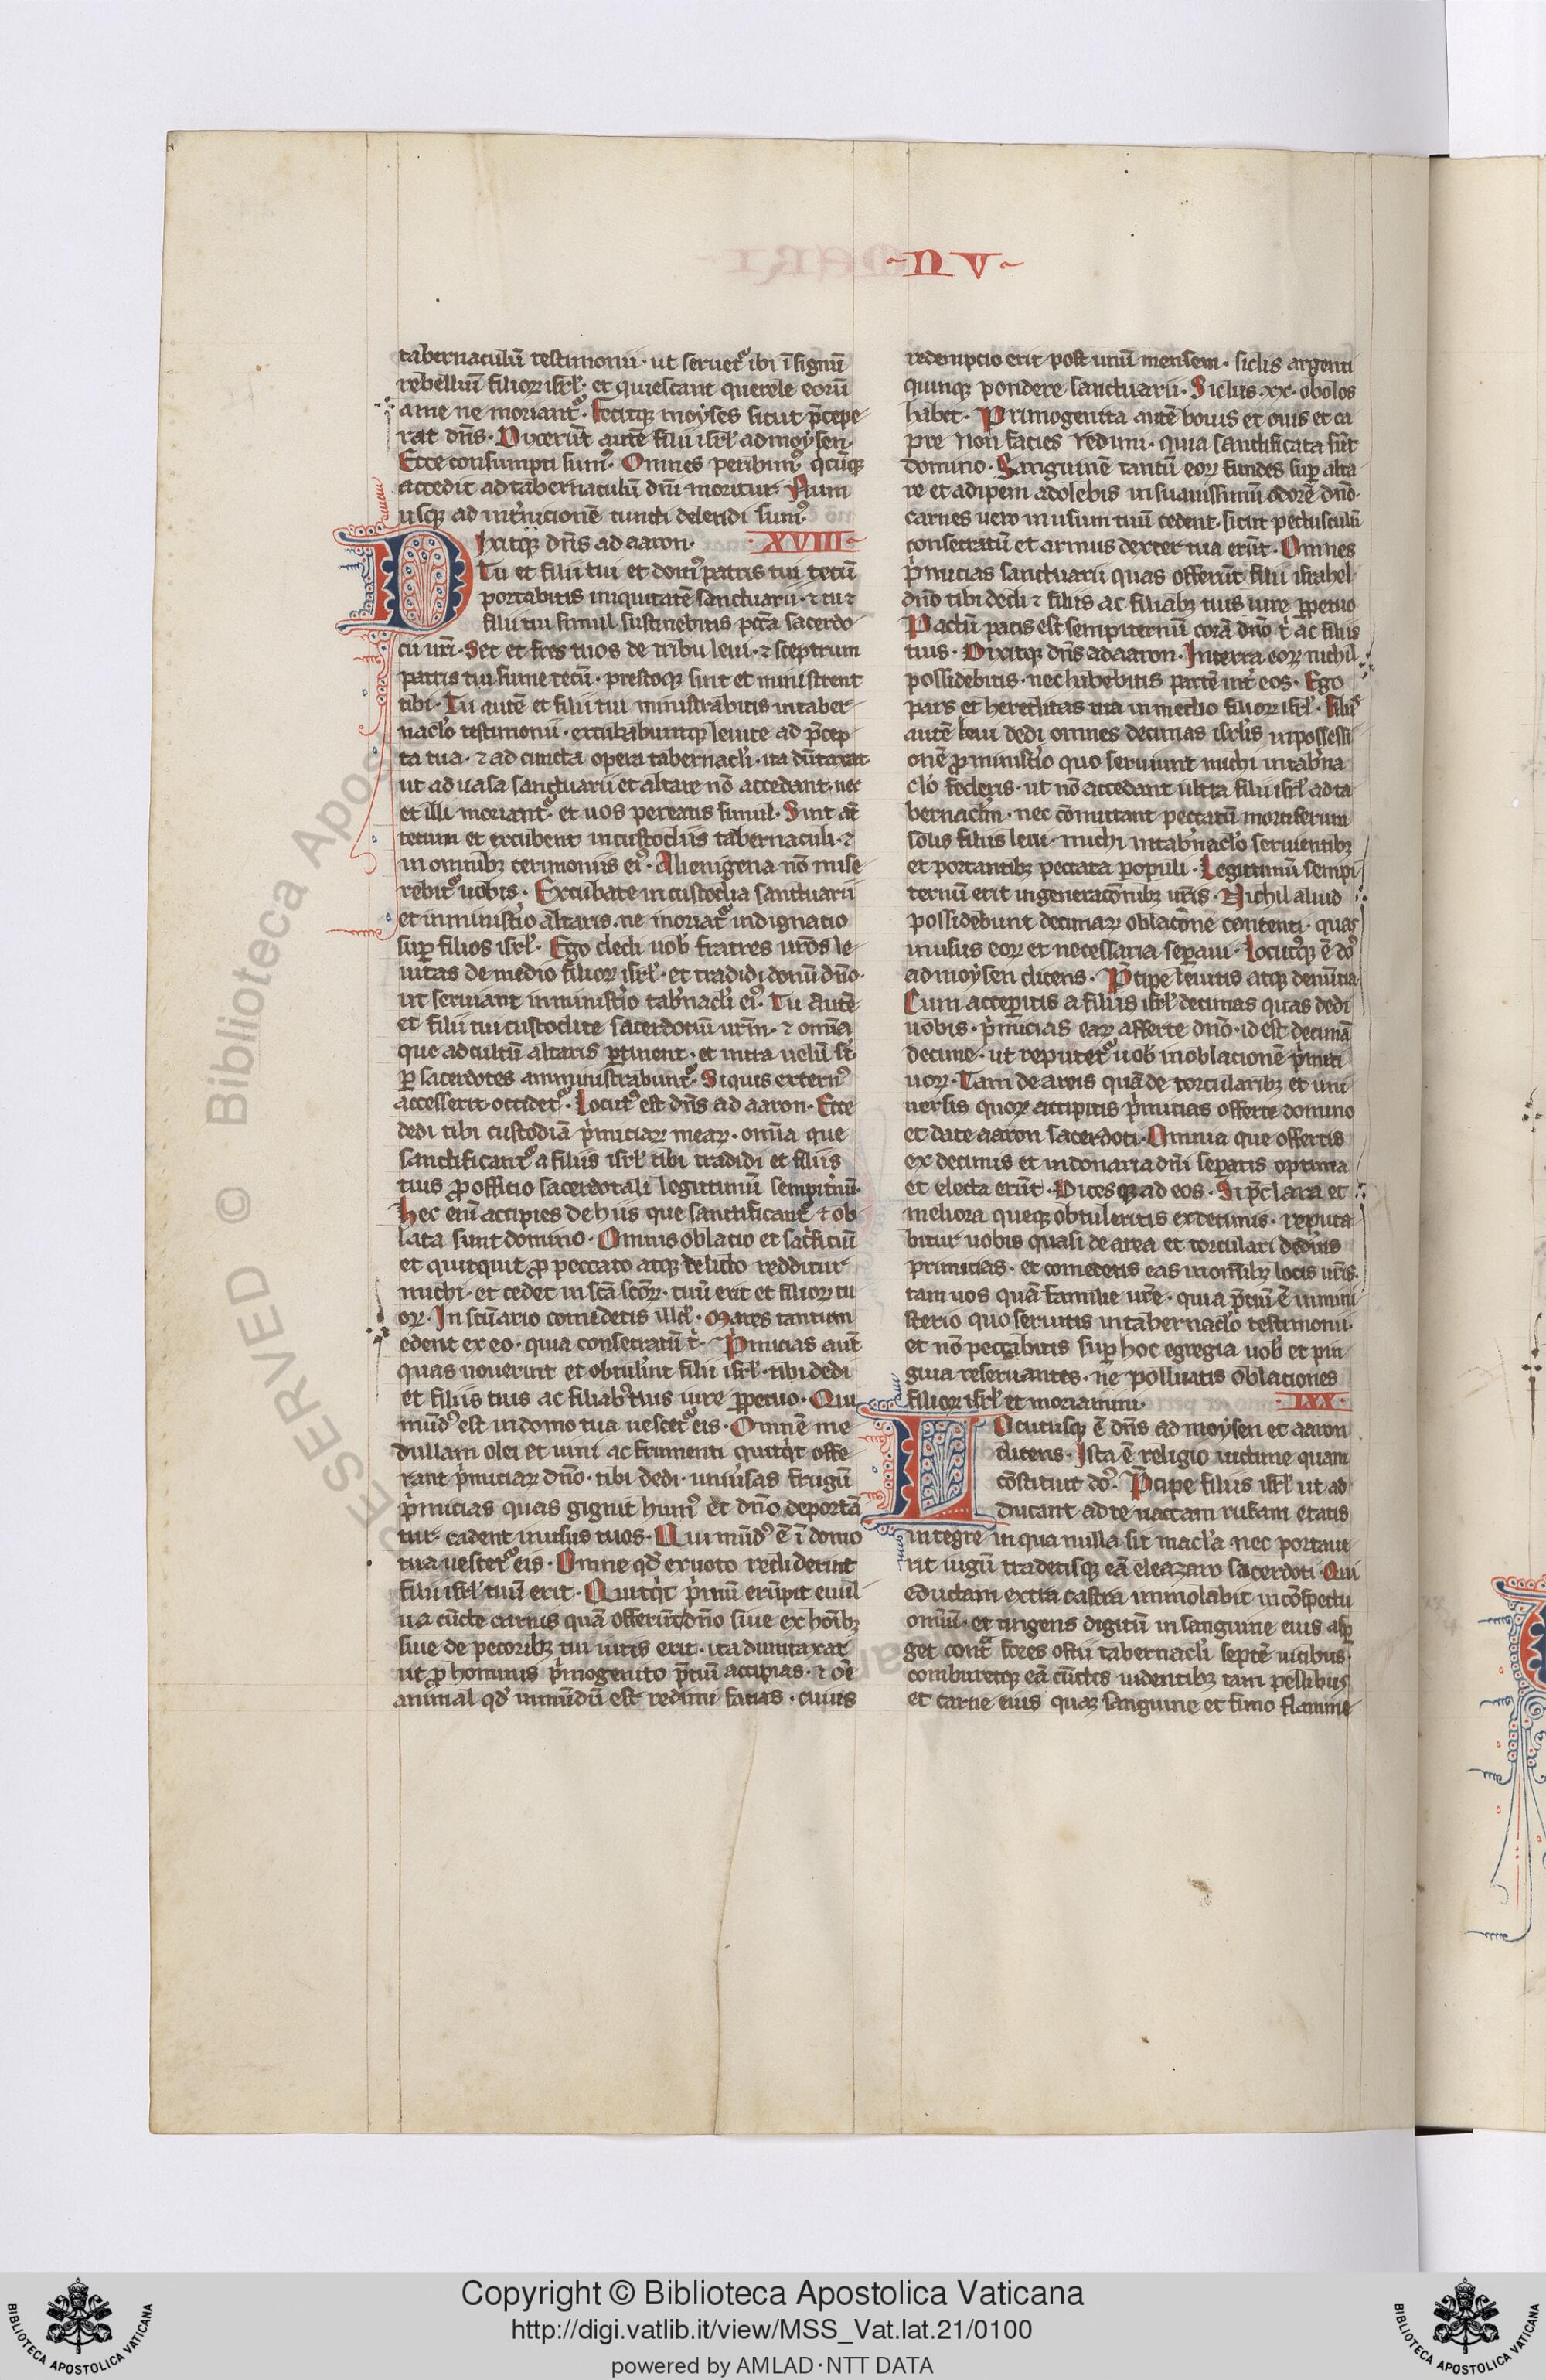 NV
tab̕ernaculū testimonii · ut seruet᷑ ibi ī signū
rebelliū filioꝝ isrl̕ · et quiescant querele eorū
a me ne moriant᷑ · Fecitqꝫ moyses sicut p̄cepe
rat dn̄s · Dixerūt autē filii isrl̕ ad moysen ·
Ecce consumpti sumꝰ · Omnes peribimꝰ q̇cūqꝫ
accedit ad tab̕ernaculū dn̄i moritur · Num
usqꝫ ad int̕nicionē cuncti delendi sumꝰ
Dixitqꝫ dn̄s ad aaron · XVIII
Tu et filii tui et domꝰ patris tui tecū
portabitis iniquitatē sanctuarii · ⁊ tu ⁊
filii tui simul sustinebitis pcc̄a sacerdo
cii ur̄i · Sec et fr̄es tuos de tribu leui · ⁊ sceptrum
patris tui sume tecū · prestoqꝫ sint et ministrent
tibi · Tu autē et filii tui ministrabitis in taber
naclo̕ testimonii · excubabuntqꝫ leuite ad p̄cep
ta tua · ⁊ ad cuncta opera tabernacli̕ · ita dūtaxat
ut ad uasa sanctuarii et altare nō accedant · nec
et illi moriant᷑ · et uos pereatis simul · Sint aūt
tecum et excubent in custodiis tabernaculi · ⁊
in omnibꝫ cerimoniis eiꝰ · Alienigena nō misc
rebit᷑ uobis · Excubate in custodia sanctuarii
et in minist̕io altaris · ne moriat᷑ indignatio
suꝑ filios isrl̕ · Ego dedi uob̕ fratres ur̄os le
uitas de medio filioꝝ isrl̕ · et tradidi donū dn̄o ·
ut seruiant in minist̕io tab̕nacli̕ eiꝰ · Tu autē
et filii tui custodite sacerdotiū ur̄m · ⁊ om̄ia
que ad cultū altaris ꝑtinent · et intra uelū st̕
ꝑ sacerdotes amministrabunt᷑ · Si quis externꝰ
accesserit · occidet᷑ · Locutꝰ est dn̄s ad aaron · Ecce
dedi tibi custodiā p̕miciaꝝ meaꝝ · om̄ia que
sanctificant᷑ a filiis isrl̕ tibi tradidi et filiis
tuis ꝓ officio sacerdotali legitimū sempit̕nū ·
Hec eni᷑ accipies de hiis que sanctificant᷑ ⁊ ob
lata sunt domino · Omnis oblacio et sac̕ficiū
et quicquit ꝓ peccato atqꝫ delicto redditur
michi · et cedet in sc̄a sc̄oꝝ · tuū erit et filioꝝ tu
oꝝ · In sc̄uario comedetis illd̕ · Mares tantum
edent ex eo · quia consecratū t̕ · P̕micias aut̄
quas uouerint et obtul̕int filii isrl̕ · tibi dedi
et filiis tuis ac filiab̕ tuis iure ꝑpetuo · Qui
mūdꝰ est in domo tua uescet᷑ eis · Omnē me
dullam olei et uini ac frumenti quitq̇t offe
rant p̕miciaꝝ dn̄o · tibi dedi · uniu̕sas frugū
p̕micias quas gignit humꝰ et dn̄o deportā
tur · cadent in usus tuos · Qui mūdꝰ ē ī domo
tua uescet᷑ eis · Omne qd̕ ex uoto reddiderint
filii isrl̕ tuū erit · Quitq̇t p̕mū erūpit e uul
ua cūcte carnis quā offerūt dn̄o siue ex hoı̄bꝫ
siue de pecoribꝫ tui iuris erit · ita dumtaxat
ut ꝓ hominis p̕mogenito p̄ciū accipias · ⁊ oē
animal qd̕ inmūdū est redimi facias · cuius
redemptio erit post unū mensem · siclis argenti
quinqꝫ pondere sanctuarii · Siclus · xx · obolos
habet · Primogenita autē bouis et ouis et ca
pre non facies redimi · quia sanctificata sūt
domino · Sanguinē tantū eoꝝ fundes suꝑ alta
re et adipem adolebis in suauissimū odorē dn̄o ·
carnes uero in usum tuū cedent · sicut pectusculū
consecratū et armus dexter tua erūt · Omnes
p̕micias sanctuarii quas offerūt filii israhel
dn̄o tibi dedi ⁊ filiis ac filiabꝫ tuis iure ꝑpetuo
Pactū pacis est sempiternū corā dn̄o t̕ ac filiis
tuis · Dixitqꝫ dn̄s ad aaron · In terra eoꝝ nichil
possidebitis · nec habebitis partē int̕ eos · Ego
pars et hereditas tua in medio filioꝝ isrl̕ · Filiis
autē leui dedi omnes decimas isrl̕is in possessi
onē ꝓ minist̕io quo seruiunt michi in tab̕na
clo̕ federis · ut nō accedant ultra filii isrl̕ ad ta
bernaclm̄ · nec cōmittant peccatū mortiferum
solis filiis leui · michi in tab̕naclo̕ seruientibꝫ
et portantibꝫ peccata populi · Legitimū sempi
ternū erit in generacōnibꝫ ur̄is · Nichil aliud
possidebunt decimaꝝ oblacōne contenti · quas
in usus eoꝝ et necessaria seꝑaui · Locutꝰqꝫ ē dꝰ
ad moysen dicens · P̄cipe leuitis atqꝫ denūcia
Cum acceꝑitis a filiis isrl̕ decimas quas dedi
uobis · p̕micias eaꝝ afferte dn̄o · id est decimā
decime · ut reputet᷑ uob̕ in oblationē p̕miti
uoꝝ · Tam de areis quā de torcularibꝫ et uni
uersis quoꝝ accipitis p̕micias offerte domino
et date aaron sacerdoti · Omnia que offertis
ex decimis et in donaria dn̄i seꝑatis optima
et electa erūt · Dicesqꝫ ad eos · Si p̄clara et
meliora queqꝫ obtuleritis ex decimis · reputa
bitur uobis quasi de area et torculari dedi̕tis
primicias · et comedetis eas in om̄ibꝫ locis ur̄is ·
tam uos quā familie ur̄e · quia p̄ciū ē in mini
sterio quo seruitis in tabernaclo̕ testimonii ·
et nō peccabitis suꝑ hoc egregia uob̕ et pin
guia reseruantes · ne polluatis oblationes
filioꝝ isrl̕ et moriamini · IXX ·
Locutusqꝫ ē dn̄s ad moysen et aaron
dicens · Ista ē religio uictime quam
cōstituit dꝰ · P̄cipe filiis isrl̕ ut ad
ducant ad te uaccam rufam etatis
integre in qua nulla sit macl̕a nec portaue
rit iugū tradetisqꝫ eā eleazaro sacerdoti · Qui
eductam ext̕a castra immolabit in cōspectu
om̄iū · et tingens digitū in sanguine eius asꝑ
get cont̕ fores ostii tabernacli̕ septē uicibus ·
comburetqꝫ eā cūctis uidentibꝫ tam pellibus
et carne eius quaꝫ sanguine et fimo flamme
Copyright © Biblioteca Apostolica Vaticana
http://digi.vatlib.it/view/MSS_Vat.lat.21/0100
powered by AMLAD·NTT DATA
BIBLIOTECA APOSTOLICA VATICANA
BIBLIOTECA APOSTOLICA VATICANA